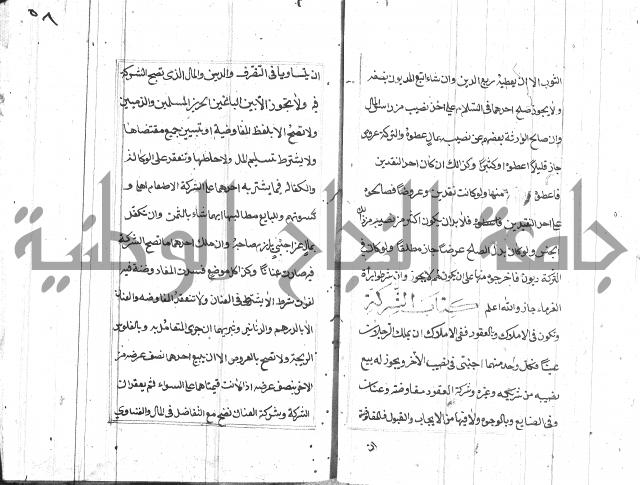 الثوب الا ان يعطيه ربع الدين وان شاء اتبع المديون بنصفه
ولا يجوز صلح احدهما فى السلم على اخذ نصيبه من راس المال
وان صالح الورثة بعضهم عن نصيب بمال اعطوه والتركة عروض
جاز قليلا اعطوا او كثيرا وكذلك ان كان احد النقدين
فاعطوه منها ولو كانت نقدين وعروضا فصالحوه
على احد النقدين فلا بد ان يكون اكثر من نصيبه من ذلك
الجنس ولو كان بدل الصلح عرضا جاز مطلقا ولو كان فى
التركة ديون فاخرجوه منها على ان يكون لهم لا يجوز وان شرطوا براة
الغرماء جاز والله اعلم كتاب الشركة
وتكون فى الاملاك وبالعقود ففى الاملاك ان يملك الرجلان
عينا فكل واحد منهما اجنبى فى نصيب الاخر ويجوز له بيع
نصيبه من شريكه وغيره وشركة العقود مفاوضة وعنان
وفى الصنايع وبالوجوه ولا بد فيها من الايجاب والقبول فالمفاوضة
ان
٥٨
ان يتساويا فى التصرف والدين والمال الذى تصح الشركة
فيه ولا يجوز الا بين البالغين الحرين المسلمين والذميين
ولا تصح الا بلفظ المفاوضة او تبيين جميع مقتضاها
ولا يشترط تسليم المال ولا خلطها وتنعقد على الوكالة
والكفالة فما يشتريه احدهما على الشركة الا طعام اهله و
كسوتهم وللبايع مطالبة ايهما شاء بالثمن وان تكفل
بمال عن اجنبى يلزم صاحبه وان ملك احدهما ما تصح الشركة
فيه صارت عنانا وكذا كل موضع فسدت المفاوضة فيه
لفوت شرط لا يشترط فى العنان ولا تنعقد المفاوضة والعنان
الا بالدراهم والدنانير وتبرهما ان جرى التعامل به وبالفلوس
الرايجة ولا تصح بالعروض الا ان يبيع احدهما نصف عرضه من
الاخر بنصف عرضه اذا كانت قيمتاهما على السواء ثم يعقدان
الشركة وشركة العنان تصح مع التفاضل فى المال والتساوى
جامعة النجاح الوطنية